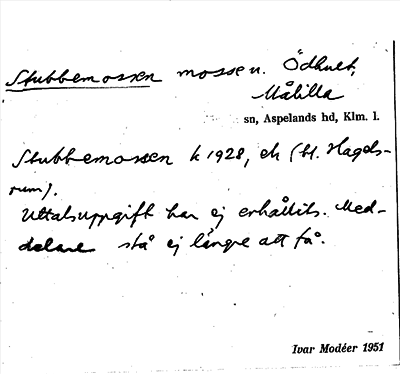 Stubbemossen mossen. Ödhult,
Målilla
sn, Aspelands hd, Klm. l.
Stubbemossen k 1928, ek (bl. Hagels-
rum).
Uttalsuppgift har ej erhållits. Med-
delare stå ej längre att få.
Ivar Modéer 1951